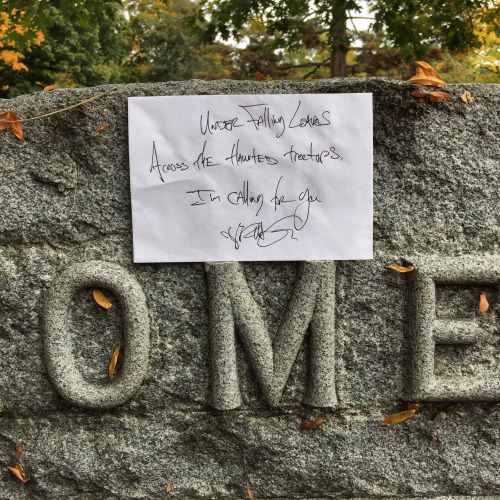 Under Falling Leaves
Across the Haunted treetops.
I'm calling for you
OME